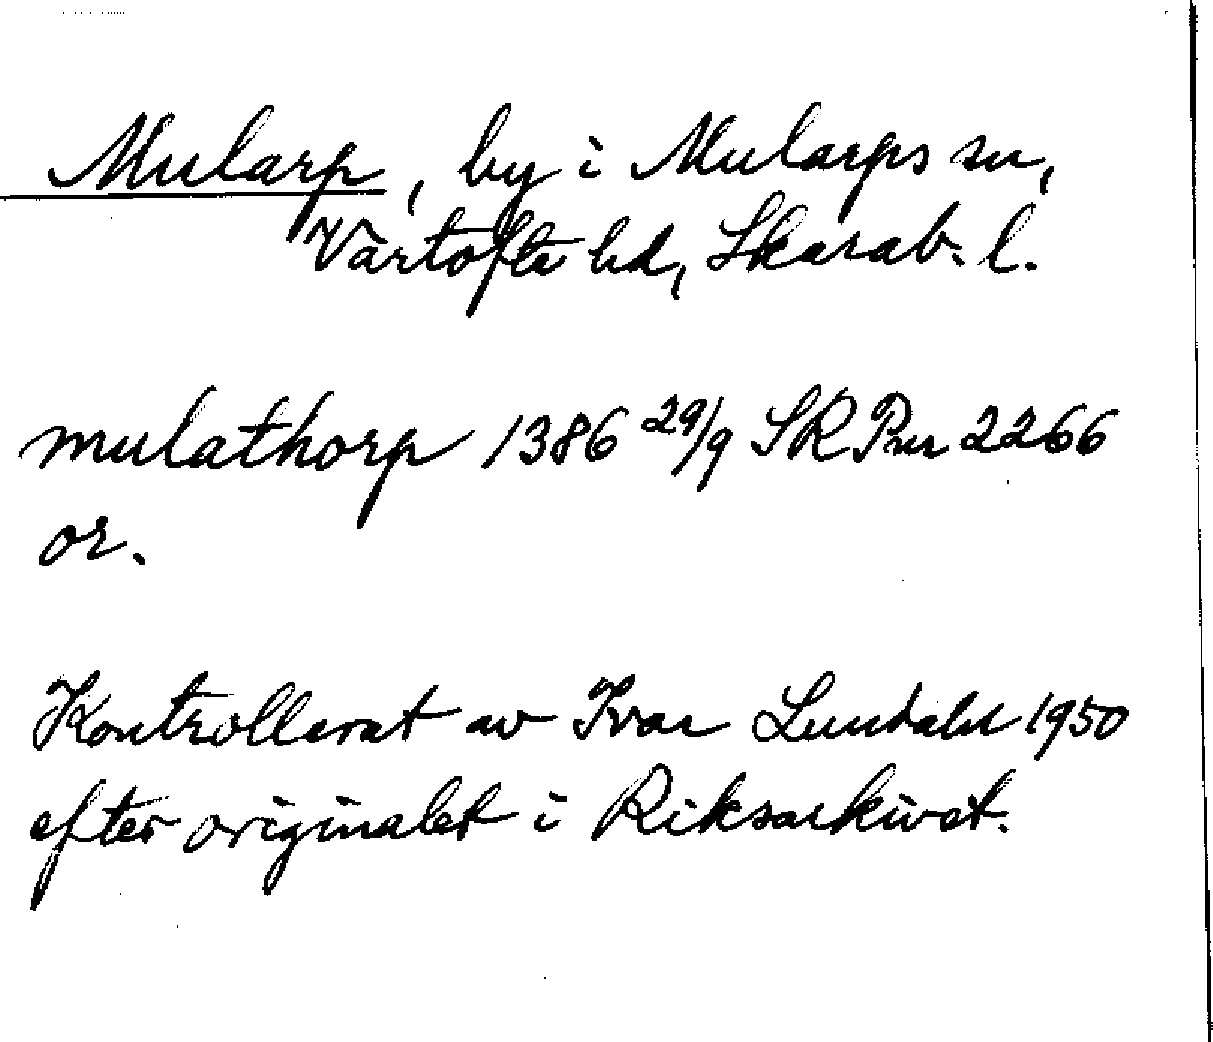 Mularp, by i Mularps sn,
Vartofta hd, Skarab. l.
mulathorp 1386 29/9 SRP nr 2266
or.
Kontrollerat av Ivar Lundahl 1950
efter originalet i Riksarkivet.